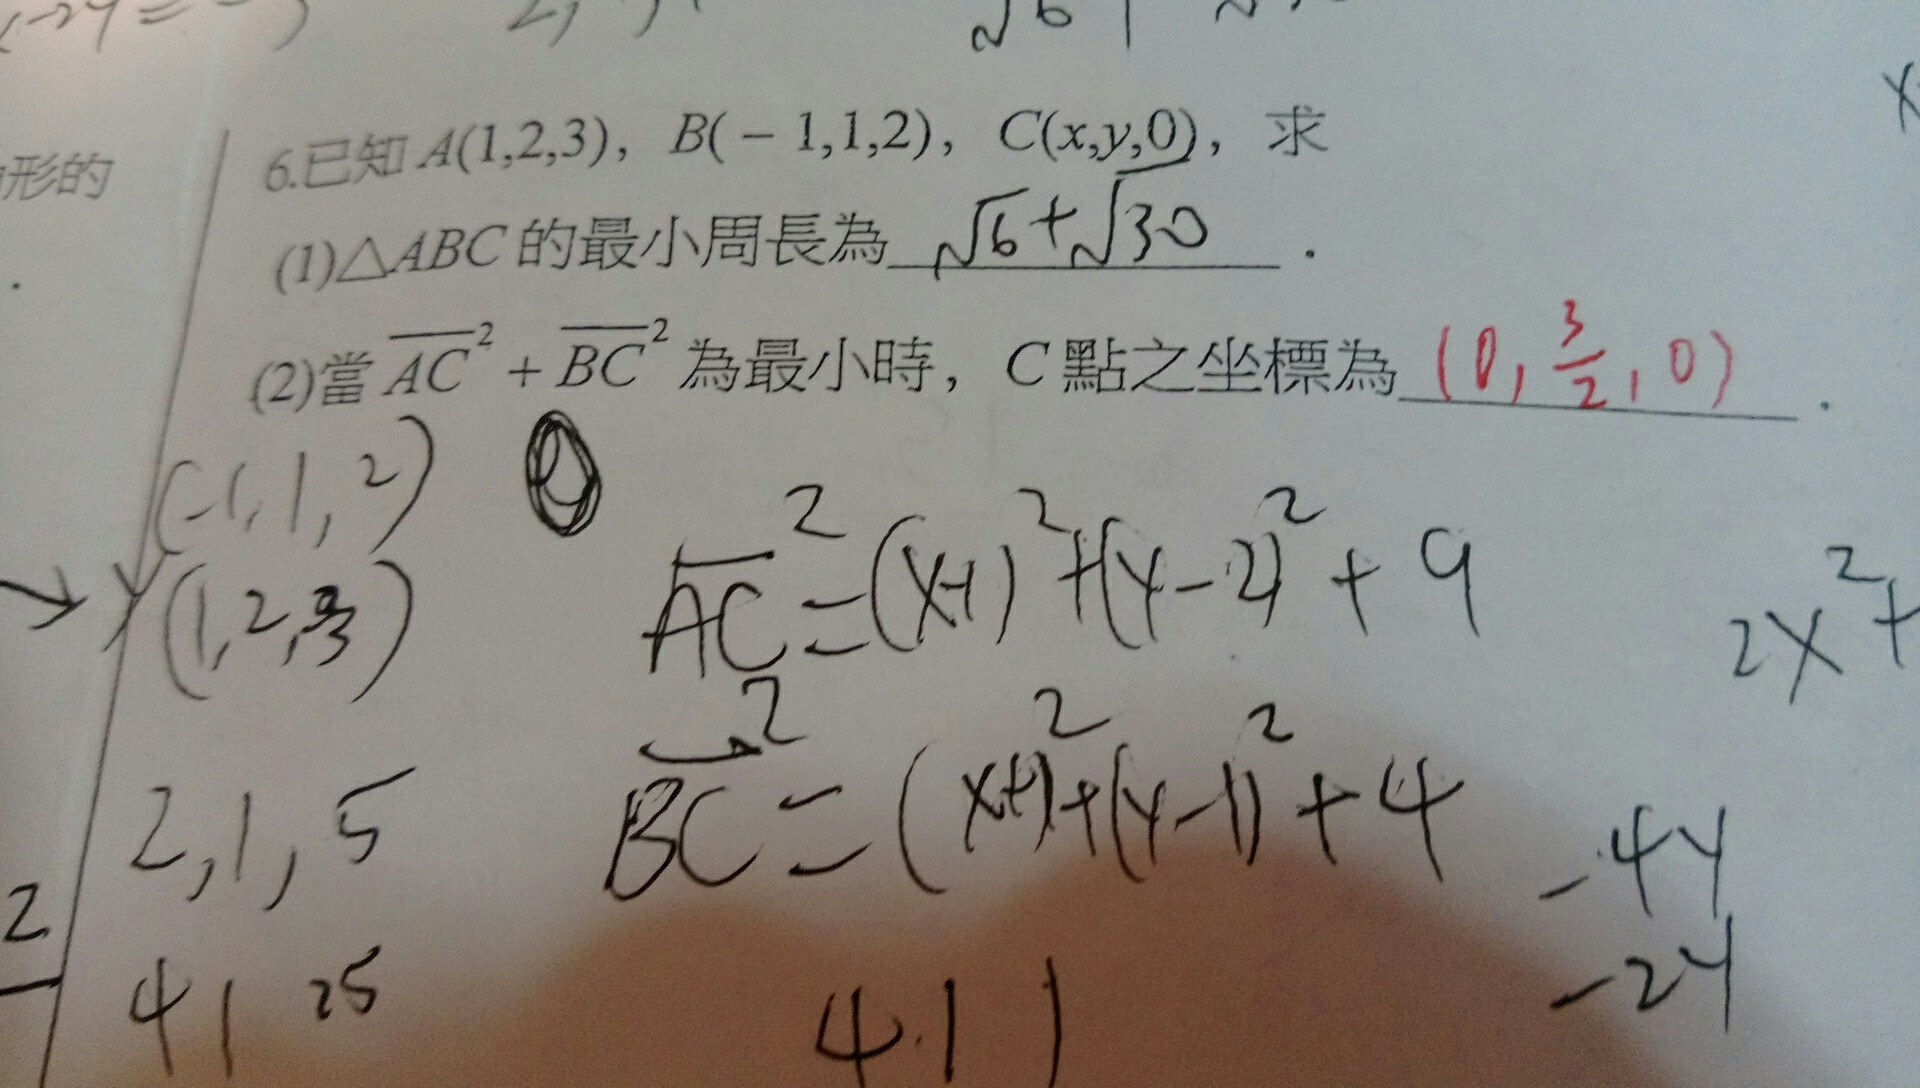 形的
6.已知 A(1,2,3)，B(－1,1,2)，C(x,y,0)，求
(1)△ABC 的最小周長為 √6+√30 .
(2)當 AC² + BC² 為最小時，C 點之坐標為 (0, 3/2, 0) .
(-1,1,2)
(1,2,3)
AC² = (x-1)² + (y-2)² + 9
2x²+
BC² = (x+1)² + (y-1)² + 4
2,1,5
-4y
-2y
2
4 1 25
4.1 1